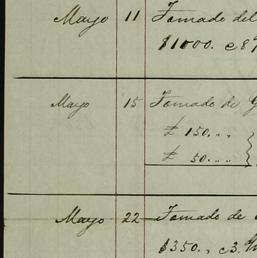 Mayo 11 Tomado del
$1000. c
Mayo 15 Tomado de G
£ 150. "
£ 50. "
Mayo 22 Tomado de
$350. , c3.